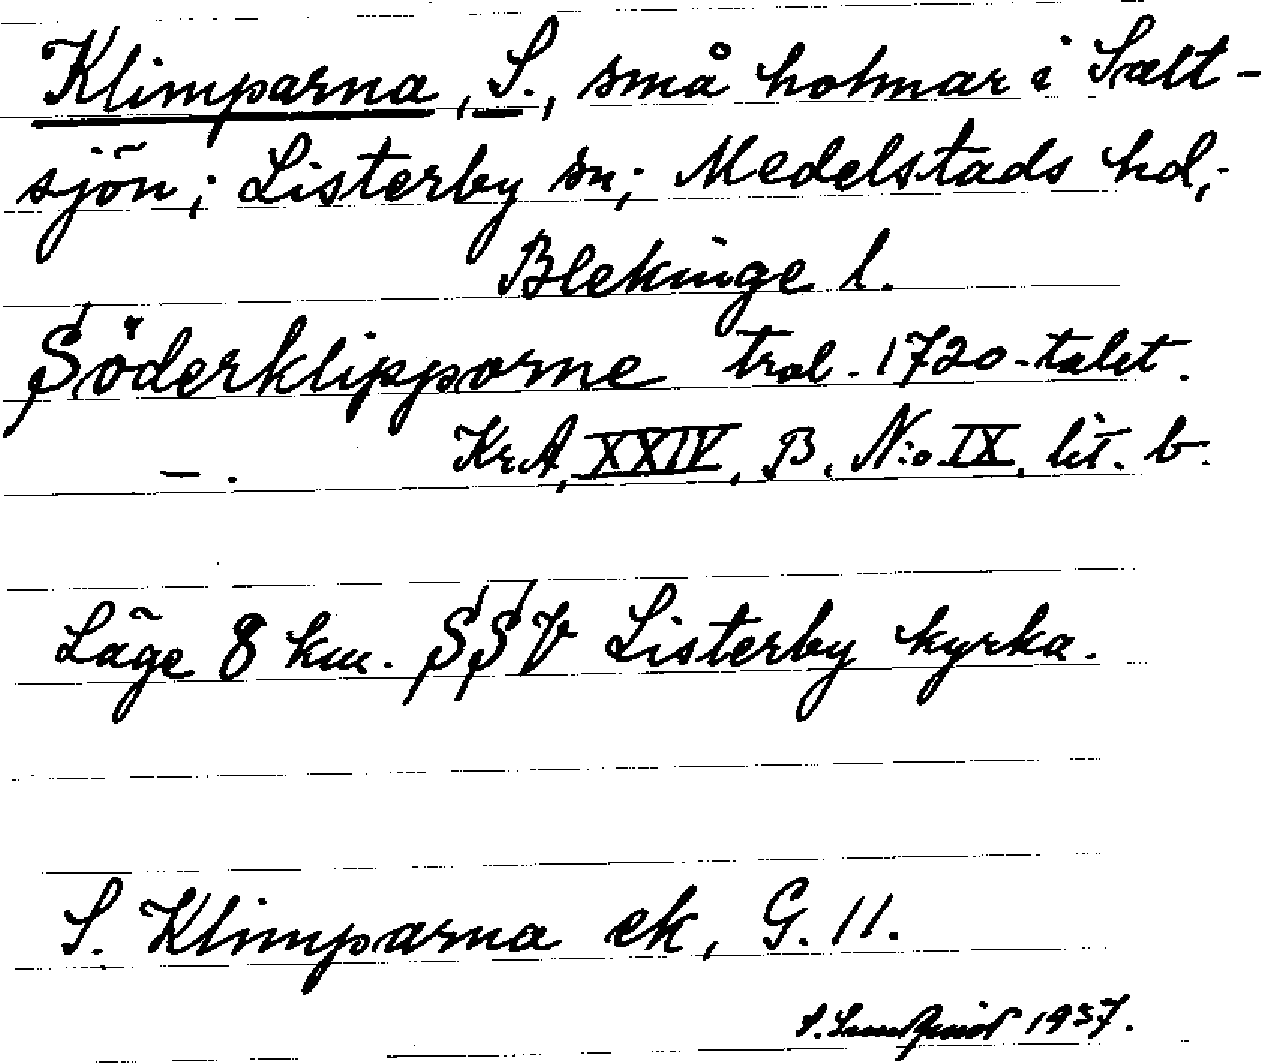 Klimparna, S., små holmar i Salt-
sjön; Listerby sn; Medelstads hd,
Blekinge l.
Söderklipporne trol. 1720-talet.
— . KrA, XXIV, B, N:o IX, lit. b.
Läge 8 km. SSV Listerby kyrka.
S. Klimparna ek, G. 11.
1937.